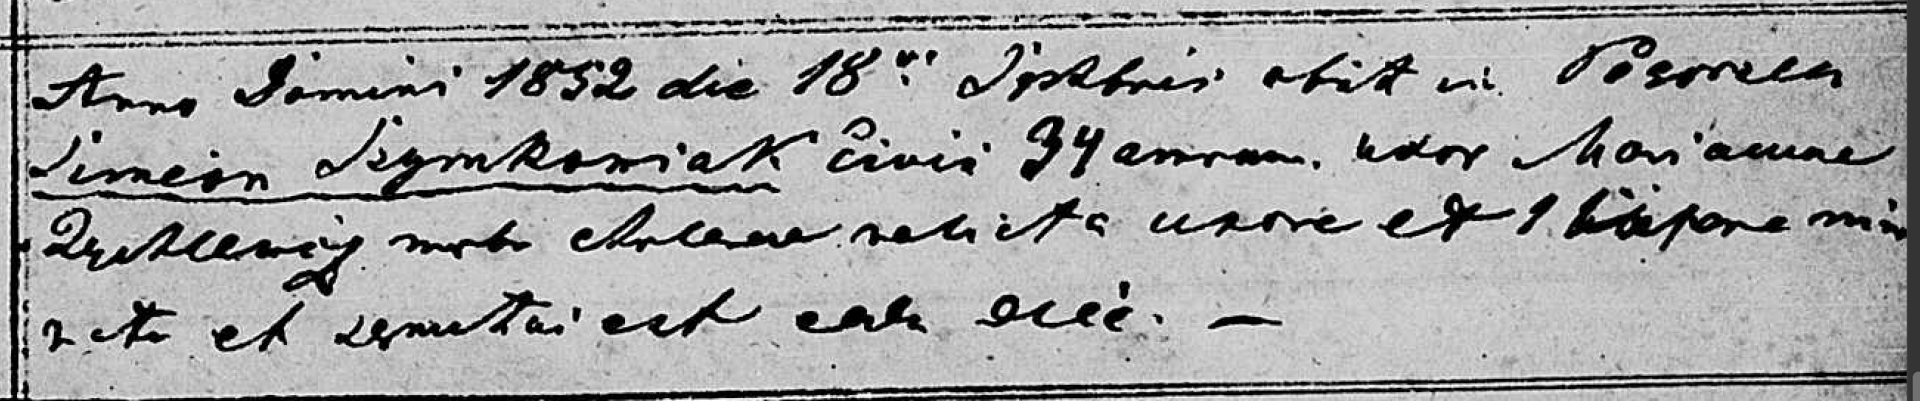 Anno Domini 1852 die 18 va Septbris obiit in Pogorzela
Simeon Szymkowiak Civis 34 annorum. uxor Marianna
Zychlewicz morbo cholerae relicta uxore et 1 mino
et sepultus est eadem die. —